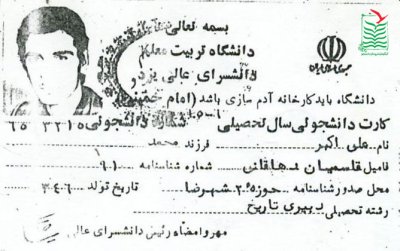 بسمه تعالی
دانشگاه تربیت معلم
دانشسرای عالی یزد
دانشگاه باید کارخانه آدم سازی باشد (امام خمینی)
کارت دانشجوئی سال تحصیلی شماره دانشجوئی ۶۵۳۲۱۵
نام علی اکبر فرزند محمد
فامیل قاسمیان دهاقانی شماره شناسنامه ۹۰۱
محل صدور شناسنامه حوزه ۲ شهرضا تاریخ تولد ۳۴۰۶
رشته تحصیلی دبیری تاریخ
مهر و امضاء رئیس دانشسرای عالی